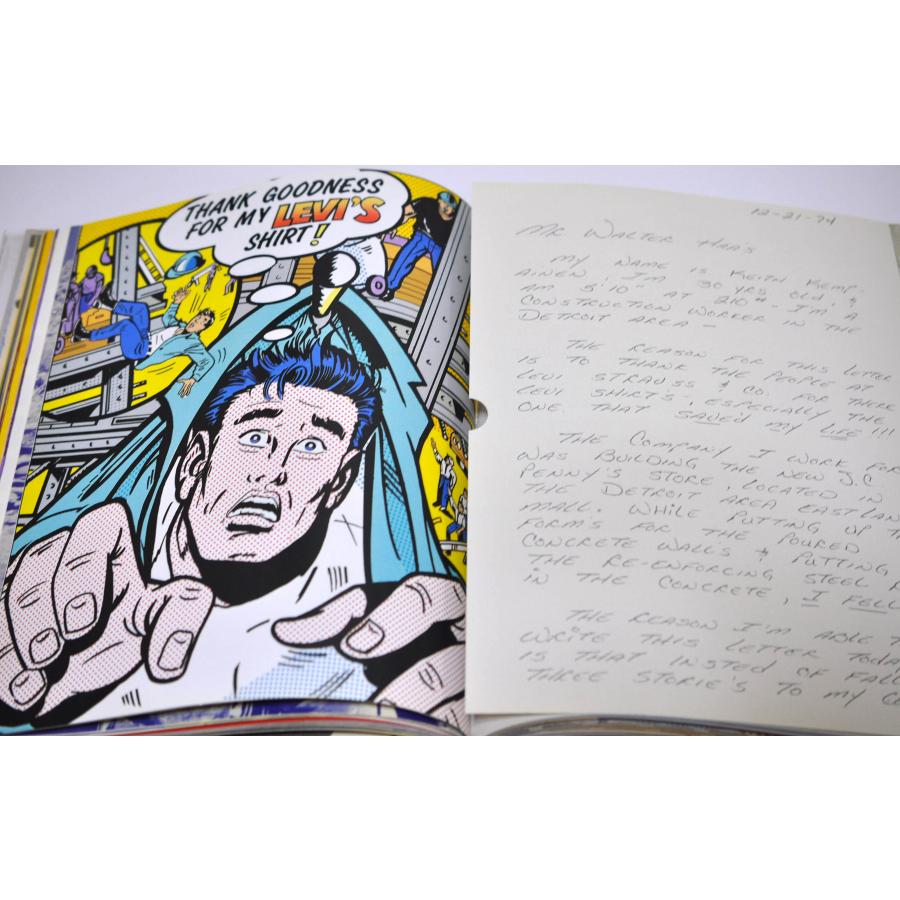 THANK GOODNESS
FOR MY LEVI'S
SHIRT!
12-21-74
MR WALTER HAA'S
MY NAME IS KEITH KEMP-
AINEN, I'M 30 YRS OLD, &
AM 5'10" AT 210#. I'M A
CONSTRUCTION WORKER IN THE
DETROIT AREA -
THE REASON FOR THIS LETTER
IS TO THANK THE PEOPLE AT
LEVI STRAUSS & CO. FOR THERE
LEVI SHIRT'S, ESPECIALLY THE
ONE THAT SAVED MY LIFE !!!
THE COMPANY I WORK FOR
WAS BUILDING THE NEW J.C.
PENNY'S STORE, LOCATED IN
THE DETROIT AREA EASTLAN
MALL. WHILE PUTTING UP TH
FORM'S FOR THE POURED
CONCRETE WALLS & PUTTING
THE RE-ENFORCING STEEL
IN THE CONCRETE, I FELL
THE REASON I'M ABLE T
WRITE THIS LETTER TODA
IS THAT INSTED OF FALL
THREE STORIE'S TO MY